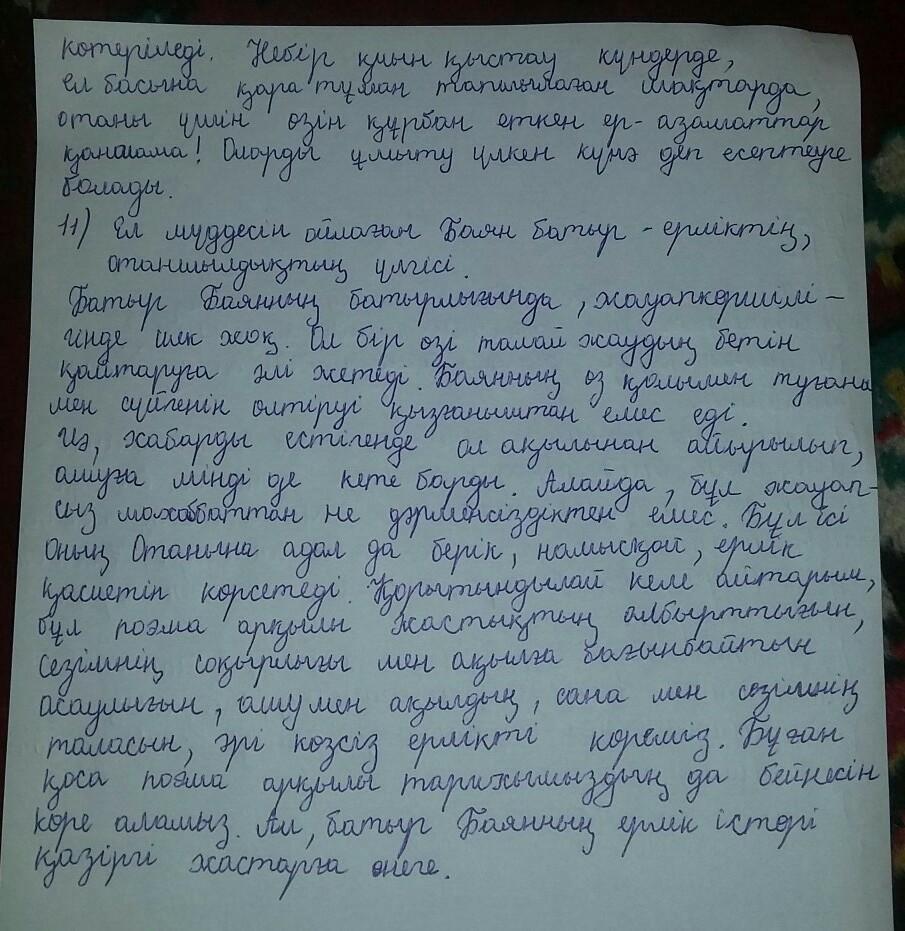 көтеріледі. Небір қиын қыстау күндерде,
ел басына қара тұман тапшылаған шақтарда,
отаны үшін өзін құрбан еткен ер-азаматтар
қаншама! Оларды ұмыту үлкен күнә деп есептеуге
болады.
11) Ел мүддесін ойлаған Баян батыр - ерліктің,
отаншылдықтың үлгісі.
Батыр Баянның батырлығында, жауапкершілі-
гінде шек жоқ. Ол бір өзі талай жаудың бетін
қайтаруға әлі жетеді. Баянның өз қолымен туғаны
мен сүйгенін өлтіруі қызғаныштан емес еді.
Иә, хабарды естігенде ол ақылынан айырылып,
ашуға мінді де кете барды. Алайда, бұл жауап-
сыз махаббаттан не дәрменсіздіктен емес. Бұл ісі
оның Отанына адал да берік, намысқой, ерлік
қасиетін көрсетеді. Қорытындылай келе айтарым,
бұл поэма арқылы жастықтың албырттығын,
сезімнің соқырлығы мен ақылға бағынбайтын
асаулығын, ашу мен ақылдың, сана мен сезімнің
таласын, әрі көзсіз ерлікті көреміз. Бұған
қоса поэма арқылы тарихымыздың да бейнесін
көре аламыз. Ал, батыр Баянның ерлік істері
қазіргі жастарға өнеге.